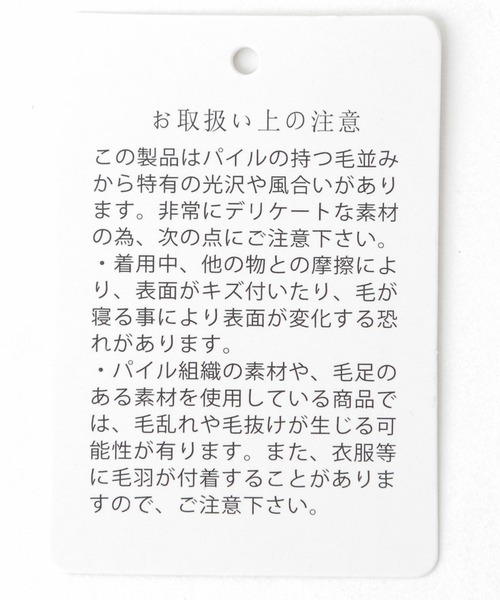 お取扱い上の注意
この製品はパイルの持つ毛並み
から特有の光沢や風合いがあり
ます。非常にデリケートな素材
の為、次の点にご注意下さい。
・着用中、他の物との摩擦によ
り、表面がキズ付いたり、毛が
寝る事により表面が変化する恐
れがあります。
・パイル組織の素材や、毛足の
ある素材を使用している商品で
は、毛乱れや毛抜けが生じる可
能性が有ります。また、衣服等
に毛羽が付着することがありま
すので、ご注意下さい。